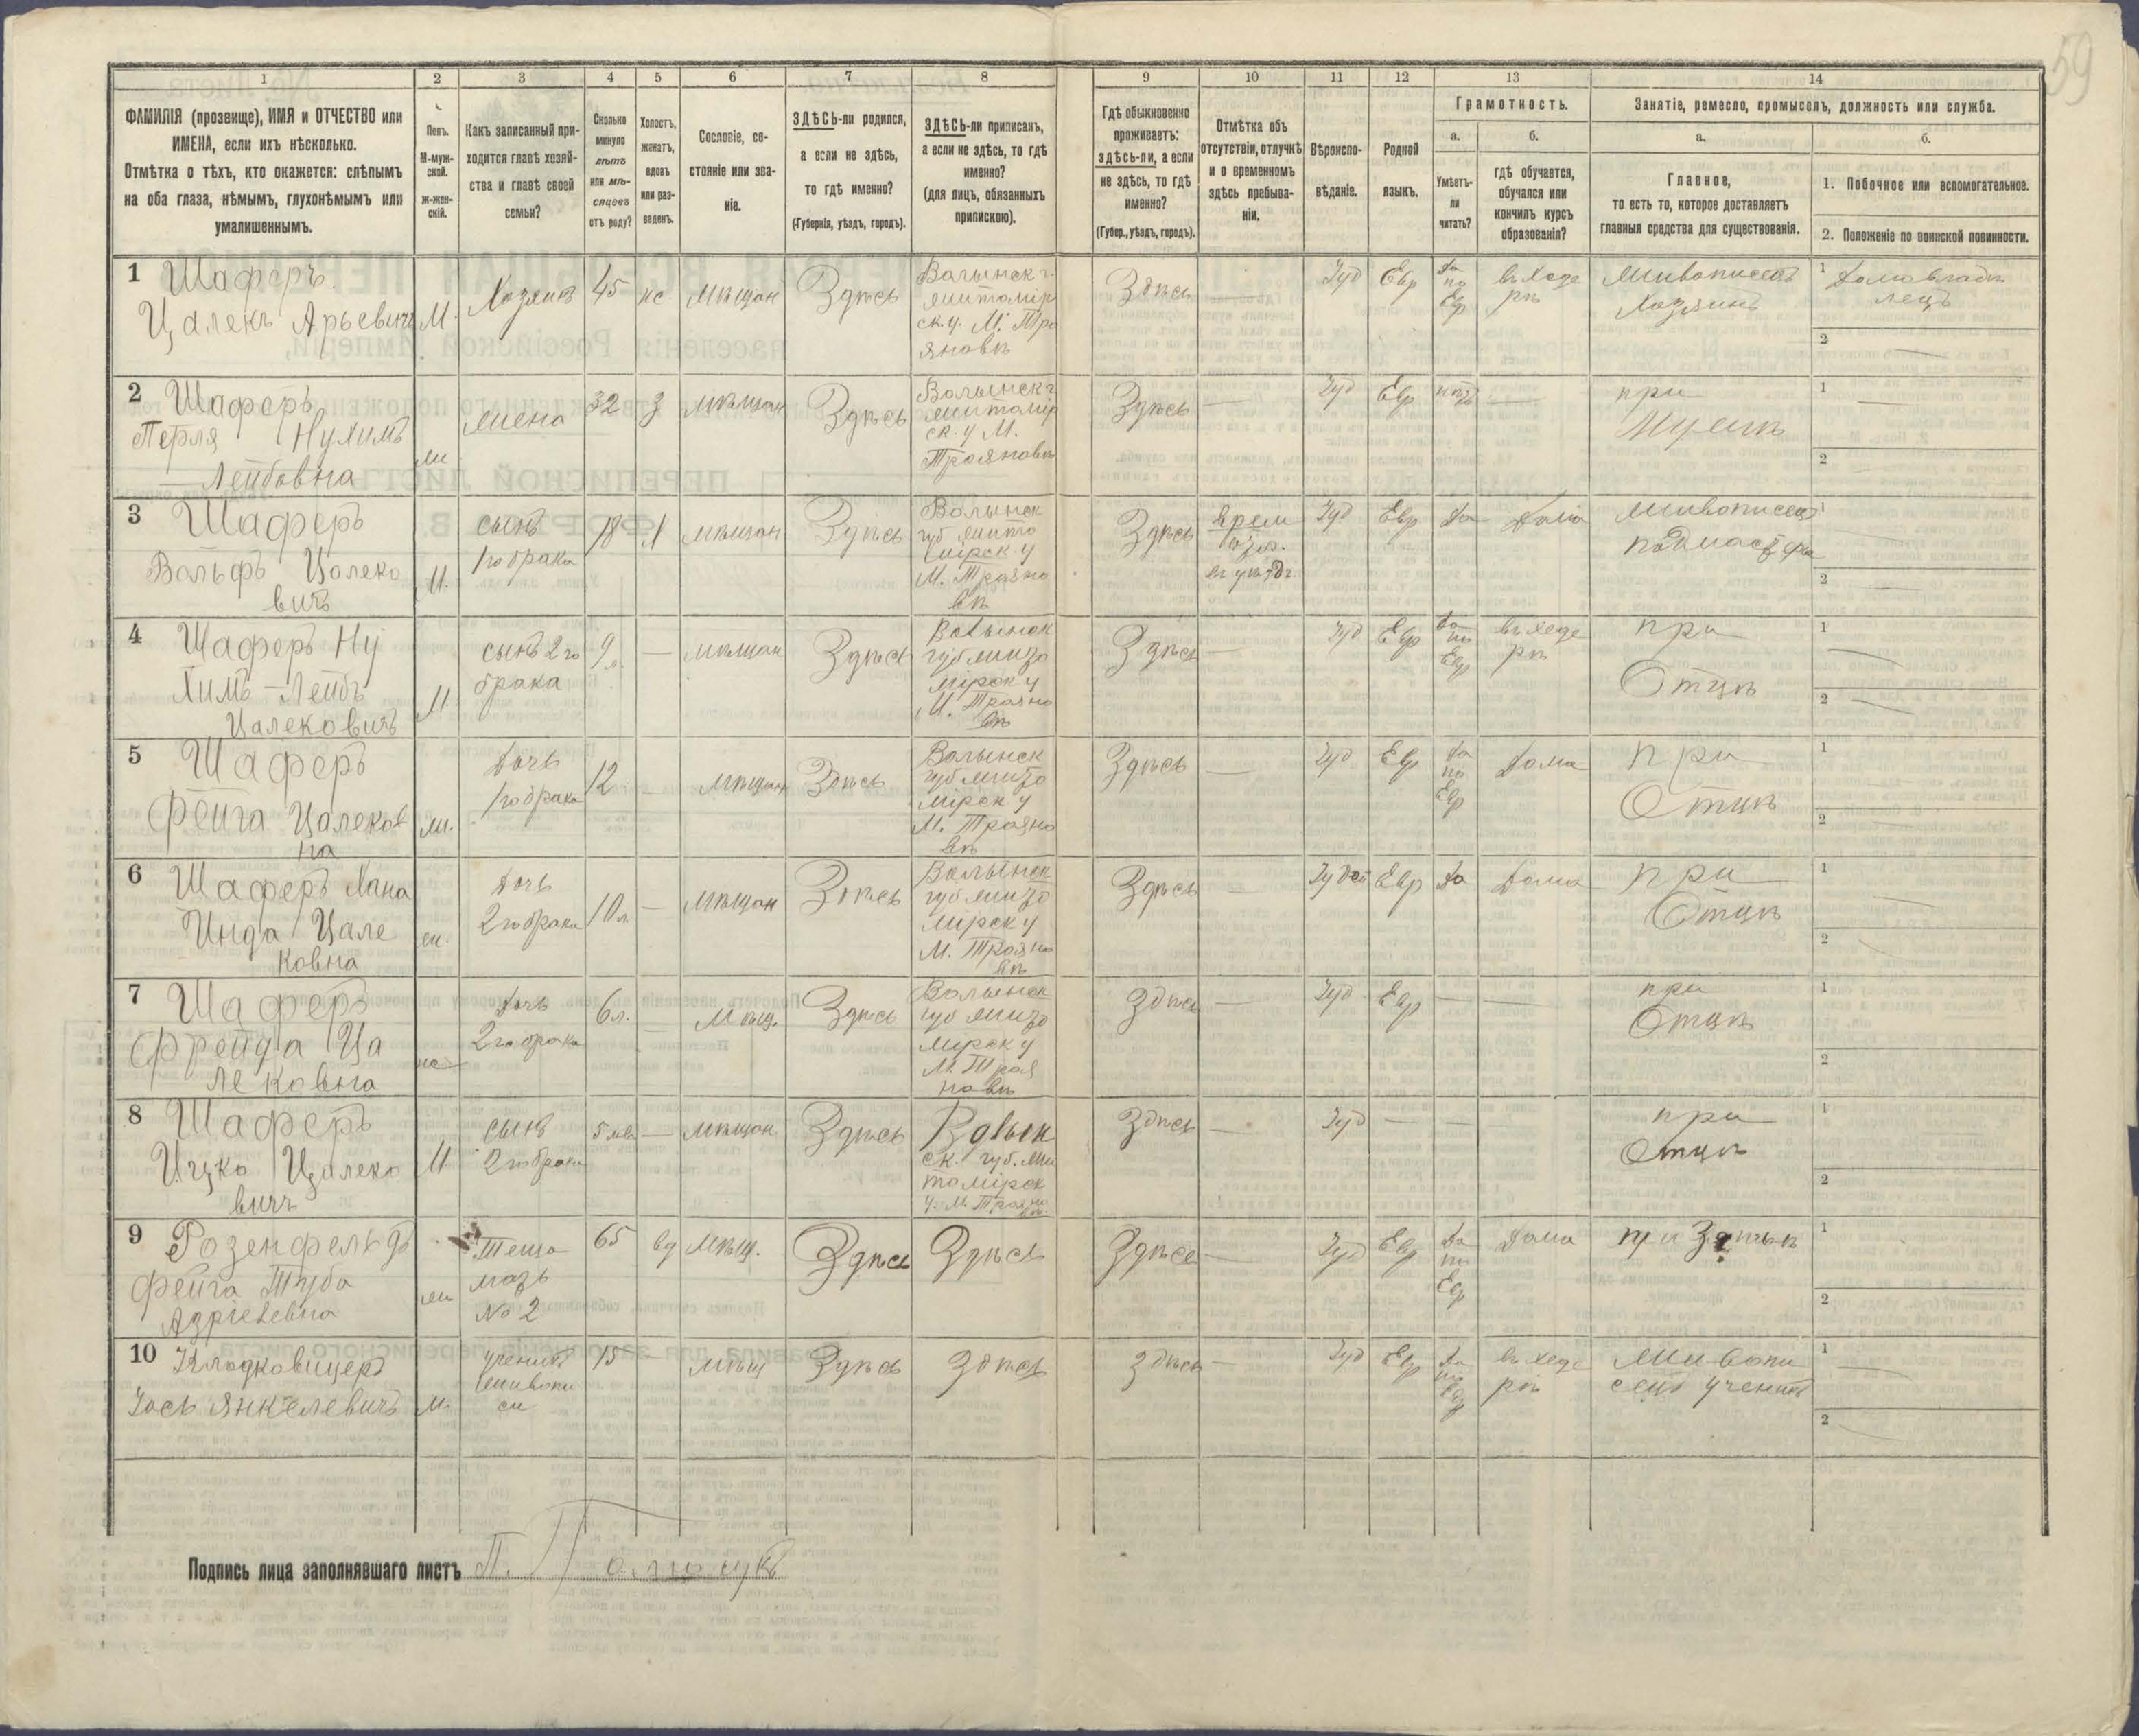 59
1 2 3 4 5 6 7 8 9 10 11 12 13 14
ФАМИЛІЯ (прозвище), ИМЯ и ОТЧЕСТВО или
ИМЕНА, если ихъ нѣсколько.
Отмѣтка о тѣхъ, кто окажется: слѣпымъ
на оба глаза, нѣмымъ, глухонѣмымъ или
умалишеннымъ.
Полъ.
М-муж-
ской.
Ж-жен-
скій.
Какъ записанный при-
ходится главѣ хозяй-
ства и главѣ своей
семьи?
Сколько
минуло
лѣтъ
или мѣ-
сяцевъ
отъ роду?
Холостъ,
женатъ,
вдовъ
или раз-
веденъ.
Сословіе, со-
стояніе или зва-
ніе.
ЗДѢСЬ-ли родился,
а если не здѣсь,
то гдѣ именно?
(Губернія, уѣздъ, городъ).
ЗДѢСЬ-ли приписанъ,
а если не здѣсь, то гдѣ
именно?
(для лицъ, обязанныхъ
припискою).
Гдѣ обыкновенно
проживаетъ:
здѣсь-ли, а если
не здѣсь, то гдѣ
именно?
(Губер., уѣздъ, городъ).
Отмѣтка объ
отсутствіи, отлучкѣ
и о временномъ
здѣсь пребыва-
ніи.
Вѣроиспо-
вѣданіе.
Родной
языкъ.
Грамотность.
а.
Умѣетъ-
ли
читать?
б.
гдѣ обучается,
обучался или
кончилъ курсъ
образованія?
Занятіе, ремесло, промыселъ, должность или служба.
а.
Главное,
то есть то, которое доставляетъ
главныя средства для существованія.
б.
1. Побочное или вспомогательное.
2. Положеніе по воинской повинности.
1 Шаферъ
Цалекъ Арьевичъ
М.
Хозяинъ
45
Мѣщан
Здѣсь
Волынск г.
житомір
ск. у. М. Тро
яновкѣ
Здѣсь
Іуд
Евр
да
по
Евр
въ хеде
рѣ
Живописецъ
Хозяинъ
1 Домовладѣ
лецъ
2
2 Шаферъ
Перля Нухимъ
Лейбовна
ж
жена
32
з
мѣщан
Здѣсь
Волынск г
житомір
ск. у М.
Трояновкѣ
Здѣсь —
Іуд
Евр
нѣтъ
—
при
Мужѣ
1 —
2 —
3 Шаферъ
Вольфъ Цалеко
вичъ
М.
сынъ
1го брака
18
мѣщан
Здѣсь
Волынск
губ жито
мірск. у
М. Трояно
вкѣ
Здѣсь
Врем
въ уѣзд
Іуд
Евр
да
дома
живописец
подмастер
1
2 —
4 Шаферъ Ну
химъ-Лейбъ
Цалековичъ
М
сынъ 2го
брака
9
л.
—
мѣщан
Здѣсь
Волынск
губ жито
мірск у
М. Трояно
вкѣ
Здѣсь —
Іуд
Евр
да
по
Евр
въ хеде
рѣ
при
Отцѣ
1 —
2 —
5 Шаферъ
Фейга Цалеков
на
ж.
дочь
1го брака
12
—
мѣщан
Здѣсь
Волынск
губ жито
мірск у
М. Трояно
вкѣ
Здѣсь —
Іуд
Евр
да
по
Евр
дома
при
Отцѣ
1
2
6 Шаферъ Хана
Инда Цале
ковна
дочь
2го брака
10л
—
мѣщан
Здѣсь
Волынск
губ жито
мірск у
М. Трояно
вкѣ
Здѣсь —
Іудей
Евр
да
дома
при
Отцѣ
1 —
2 —
7 Шаферъ
Фрейда Ца
лековна
дочь
2го брака
6л.
—
Мѣщ.
Здѣсь
Волынск
губ жито
мірск у
М. Троя
новкѣ
Здѣсь —
Іуд
Евр
—
—
при
Отцѣ
1
2
8 Шаферъ
Ицко Цалеко
вичъ
М
сынъ
2го брака
5 мѣс
—
мѣщан
Здѣсь
Волын
ск. губ. жи
томірск
у. М. Трояно
вкѣ
Здѣсь —
Іуд
—
—
—
при
Отцѣ
1
2
9 Розенфельдъ
Фейга Туба
ж
Теща
№ 2
65
вд
Мѣщ.
Здѣсь
Здѣсь
Здѣсь —
Іуд
Евр
да
по
Евр
дома
при Зятьѣ
1
2
10
Іось Янкелевичъ
М.
ученикъ
живопи
си
15
—
мѣщ
Здѣсь
Здѣсь
Здѣсь —
Іуд
Евр
да
по
Евр
въ хеде
рѣ
живопи
сецъ ученикъ
1 —
2 —
Подпись лица заполнявшаго листъ П.